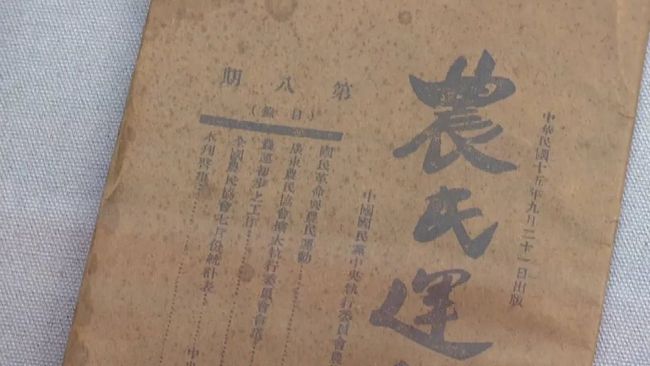 中華民國十五年九月二十一日出版
農民運
中國國民黨中央執行委員會農
第八期
(目錄)
國民革命與農民運動
廣東農民協會擴大執行委員會
農運初步之工作
全國農民協會七月份統計表
本刊啓事
中